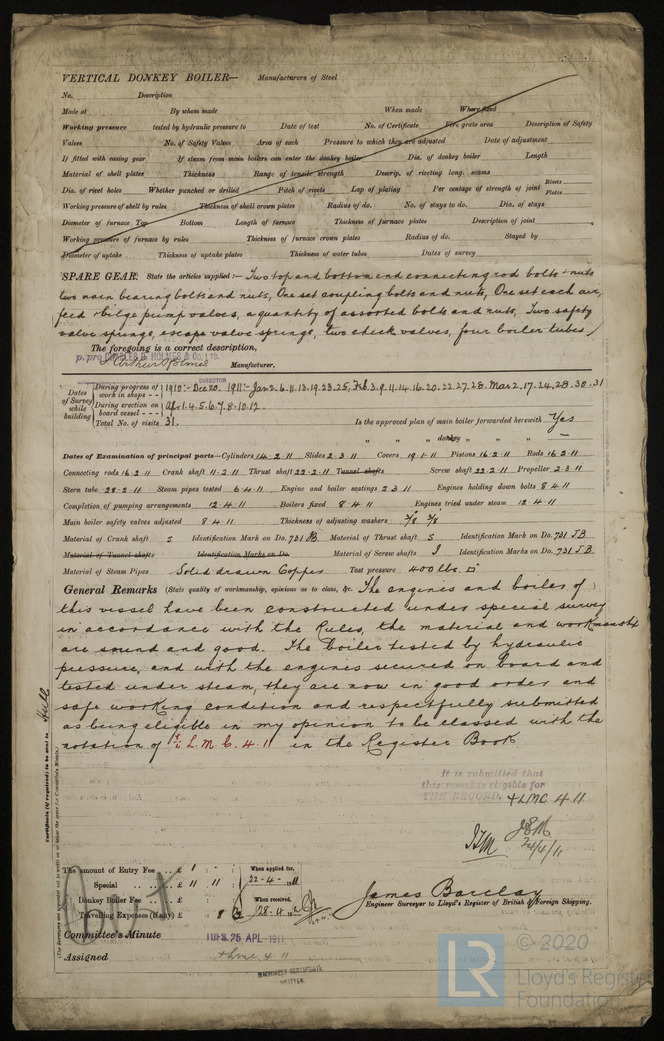 VERTICAL DONKEY BOILER— Manufacturers of Steel
No. Description
Made at By whom made When made Where fixed
Working pressure tested by hydraulic pressure to Date of test No. of Certificate Fire grate area Description of Safety
Valves No. of Safety Valves Area of each Pressure to which they are adjusted Date of adjustment
If fitted with easing gear If steam from main boilers can enter the donkey boiler Dia. of donkey boiler Length
Material of shell plates Thickness Range of tensile strength Descrip. of riveting long. seams
Dia. of rivet holes Whether punched or drilled Pitch of rivets Lap of plating Per centage of strength of joint Rivets Plates
Working pressure of shell by rules Thickness of shell crown plates Radius of do. No. of stays to do. Dia. of stays
Diameter of furnace Top Bottom Length of furnace Thickness of furnace plates Description of joint
Working pressure of furnace by rules Thickness of furnace crown plates Radius of do. Stayed by
Diameter of uptake Thickness of uptake plates Thickness of water tubes Dates of survey
SPARE GEAR. State the articles supplied:— Two top and bottom end connecting rod bolts & nuts
two main bearing bolts and nuts, One set coupling bolts and nuts, One set each air,
feed & bilge pump valves, a quantity of assorted bolts and nuts, Two safety
valve springs, escape valve springs, two check valves, four boiler tubes
The foregoing is a correct description,
p. pro CHARLES D. HOLMES & CO. LTD.
Arthur Holmes Manufacturer.
DIRECTOR
Dates of Survey while building
During progress of work in shops - - 1910:- Dec 20. 1911:- Jan 2. 6. 11. 13. 19. 23. 25, Feb 3. 9. 11. 14. 16. 20. 22. 27. 28. Mar 2. 17. 24. 28. 30. 31
During erection on board vessel - - - Apr 1. 4. 5. 6. 7. 8. 10. 12.
Total No. of visits 31. Is the approved plan of main boiler forwarded herewith Yes
" " donkey " " " —
Dates of Examination of principal parts—Cylinders 14-2-11 Slides 2-3-11 Covers 19-1-11 Pistons 16-2-11 Rods 16-2-11
Connecting rods 16-2-11 Crank shaft 11-2-11 Thrust shaft 22-2-11 Tunnel shafts Screw shaft 22-2-11 Propeller 2-3-11
Stern tube 28-2-11 Steam pipes tested 6-4-11 Engine and boiler seatings 2-3-11 Engines holding down bolts 8-4-11
Completion of pumping arrangements 12-4-11 Boilers fixed 8-4-11 Engines tried under steam 12-4-11
Main boiler safety valves adjusted 8-4-11 Thickness of adjusting washers 3/8 3/8
Material of Crank shaft S Identification Mark on Do. 731 JB Material of Thrust shaft S Identification Mark on Do. 731 JB
Material of Tunnel shafts Identification Marks on Do. Material of Screw shafts I Identification Marks on Do. 731 JB
Material of Steam Pipes Solid drawn Copper Test pressure 400 lbs. □"
General Remarks (State quality of workmanship, opinions as to class, &c. The engines and boiler of
this vessel have been constructed under special survey
in accordance with the Rules, the material and workmanship
are sound and good. The boiler tested by hydraulic
pressure, and with the engines secured on board and
tested under steam, they are now in good order and
safe working condition and respectfully submitted
as being eligible in my opinion to be classed with the
notation of L. M. C. 4. 11 in the Register Book
It is submitted that
this vessel is eligible for
THE RECORD. + LMC 4.11
24/4/11
Certificate (if required) to be sent to Hull
(The Surveyors are requested not to write on or below the space for Committee's Minute.)
The amount of Entry Fee .. £ 1 : - : When applied for,
Special .. .. £ 11 : 11 : 22-4-11
Donkey Boiler Fee .. .. £ When received,
Travelling Expenses (if any) £ 28-4-11
James Barclay
Engineer Surveyor to Lloyd's Register of British & Foreign Shipping.
Committee's Minute TUES. 25 APL 1911
Assigned + LMC 4.11
MACHINERY CERTIFICATE
WRITTEN.
LR © 2020
Lloyd's Register
Foundation